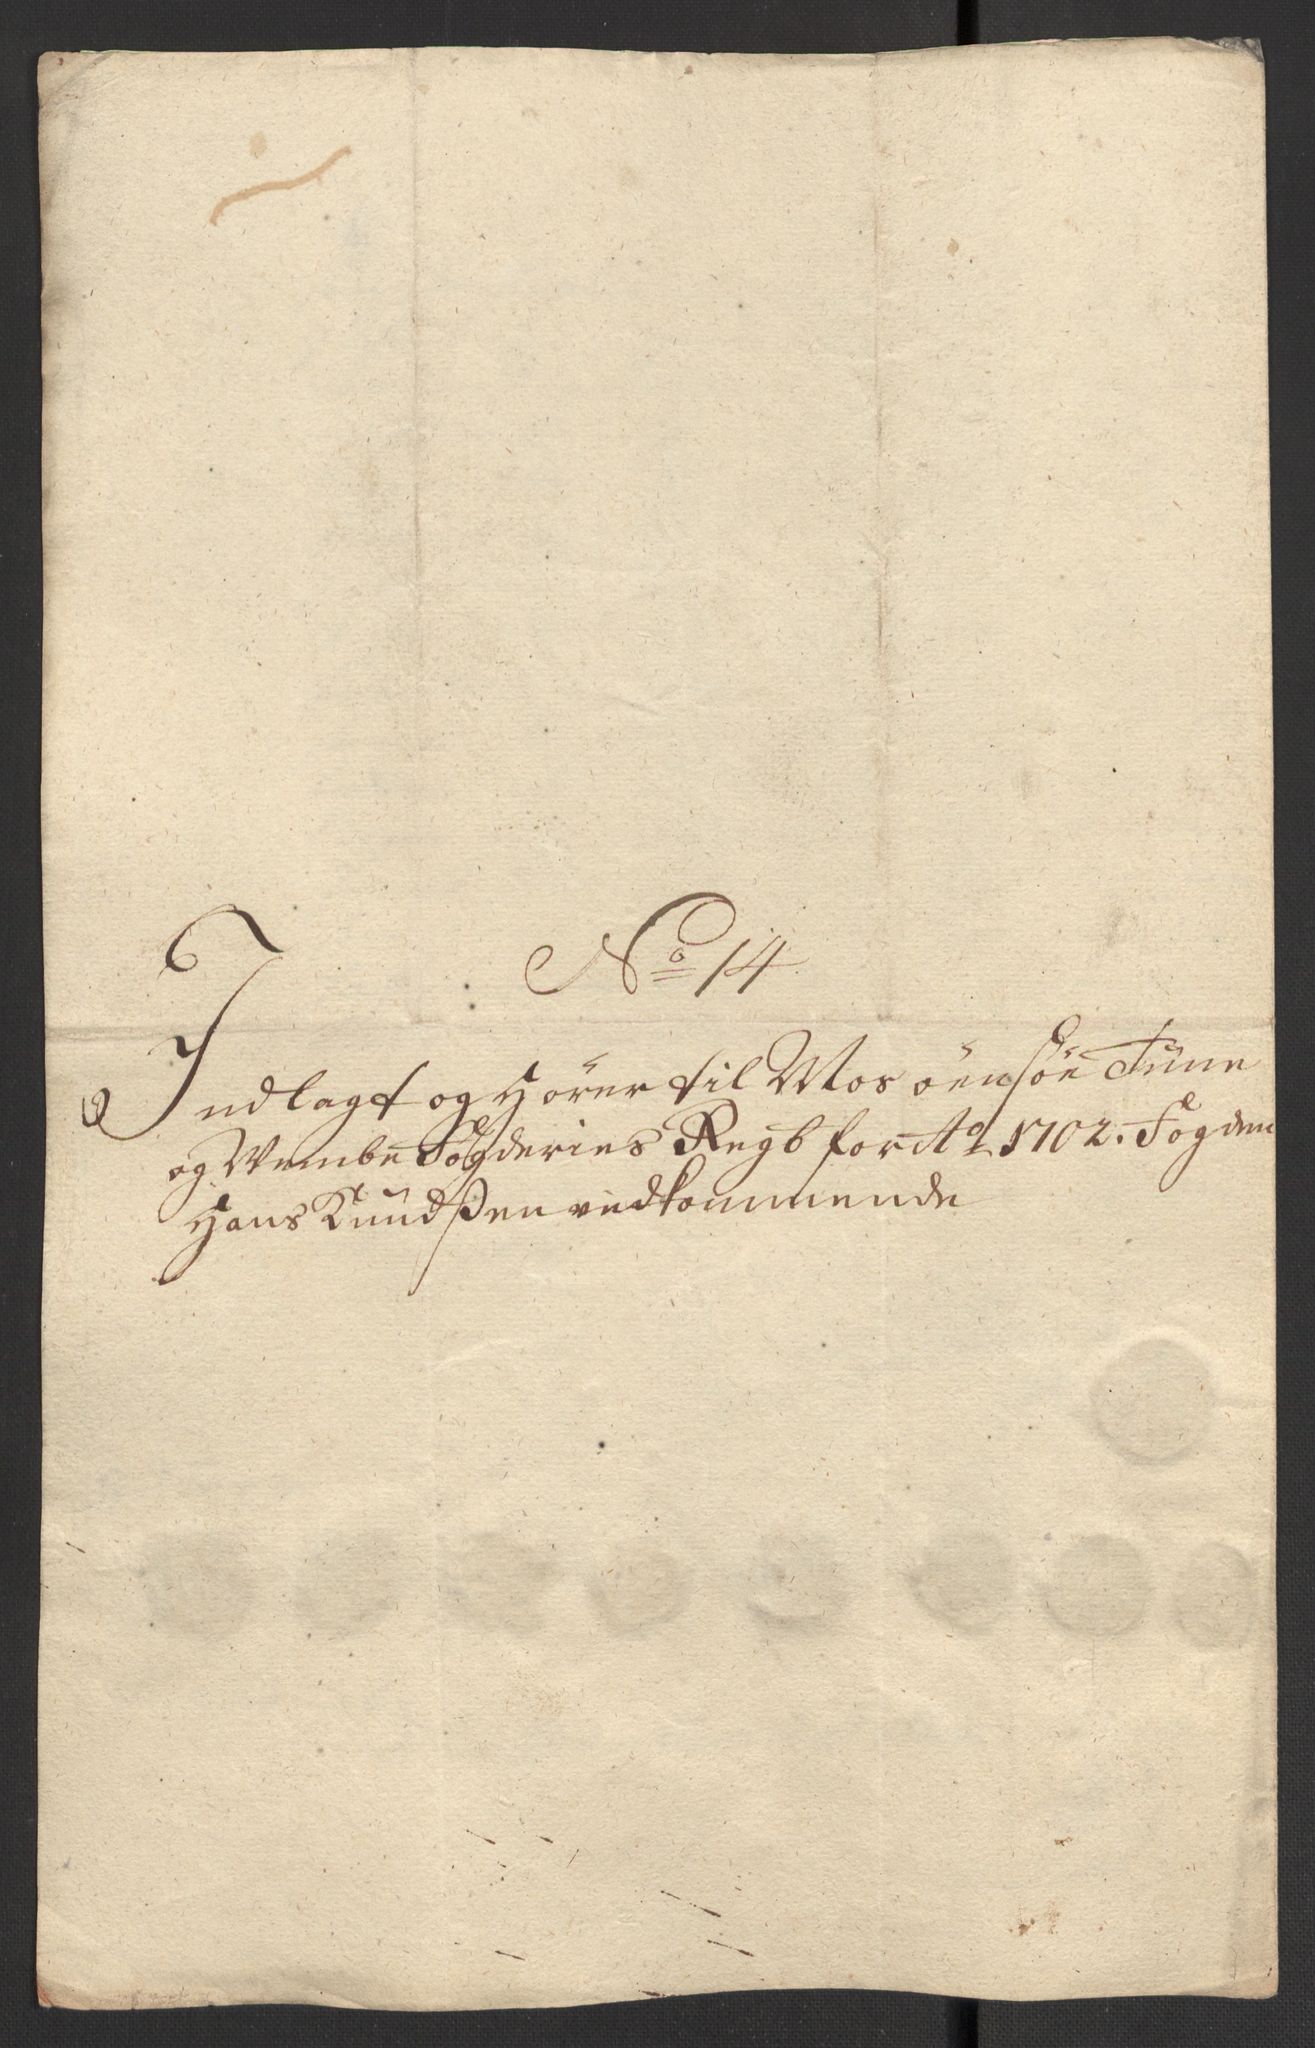 No 14
Indlagt og Hörer til Mos öensöe Tune
og Wembe Fögderies Regb for Ao 1702. Fogden
Hans Knudßen vedkommende